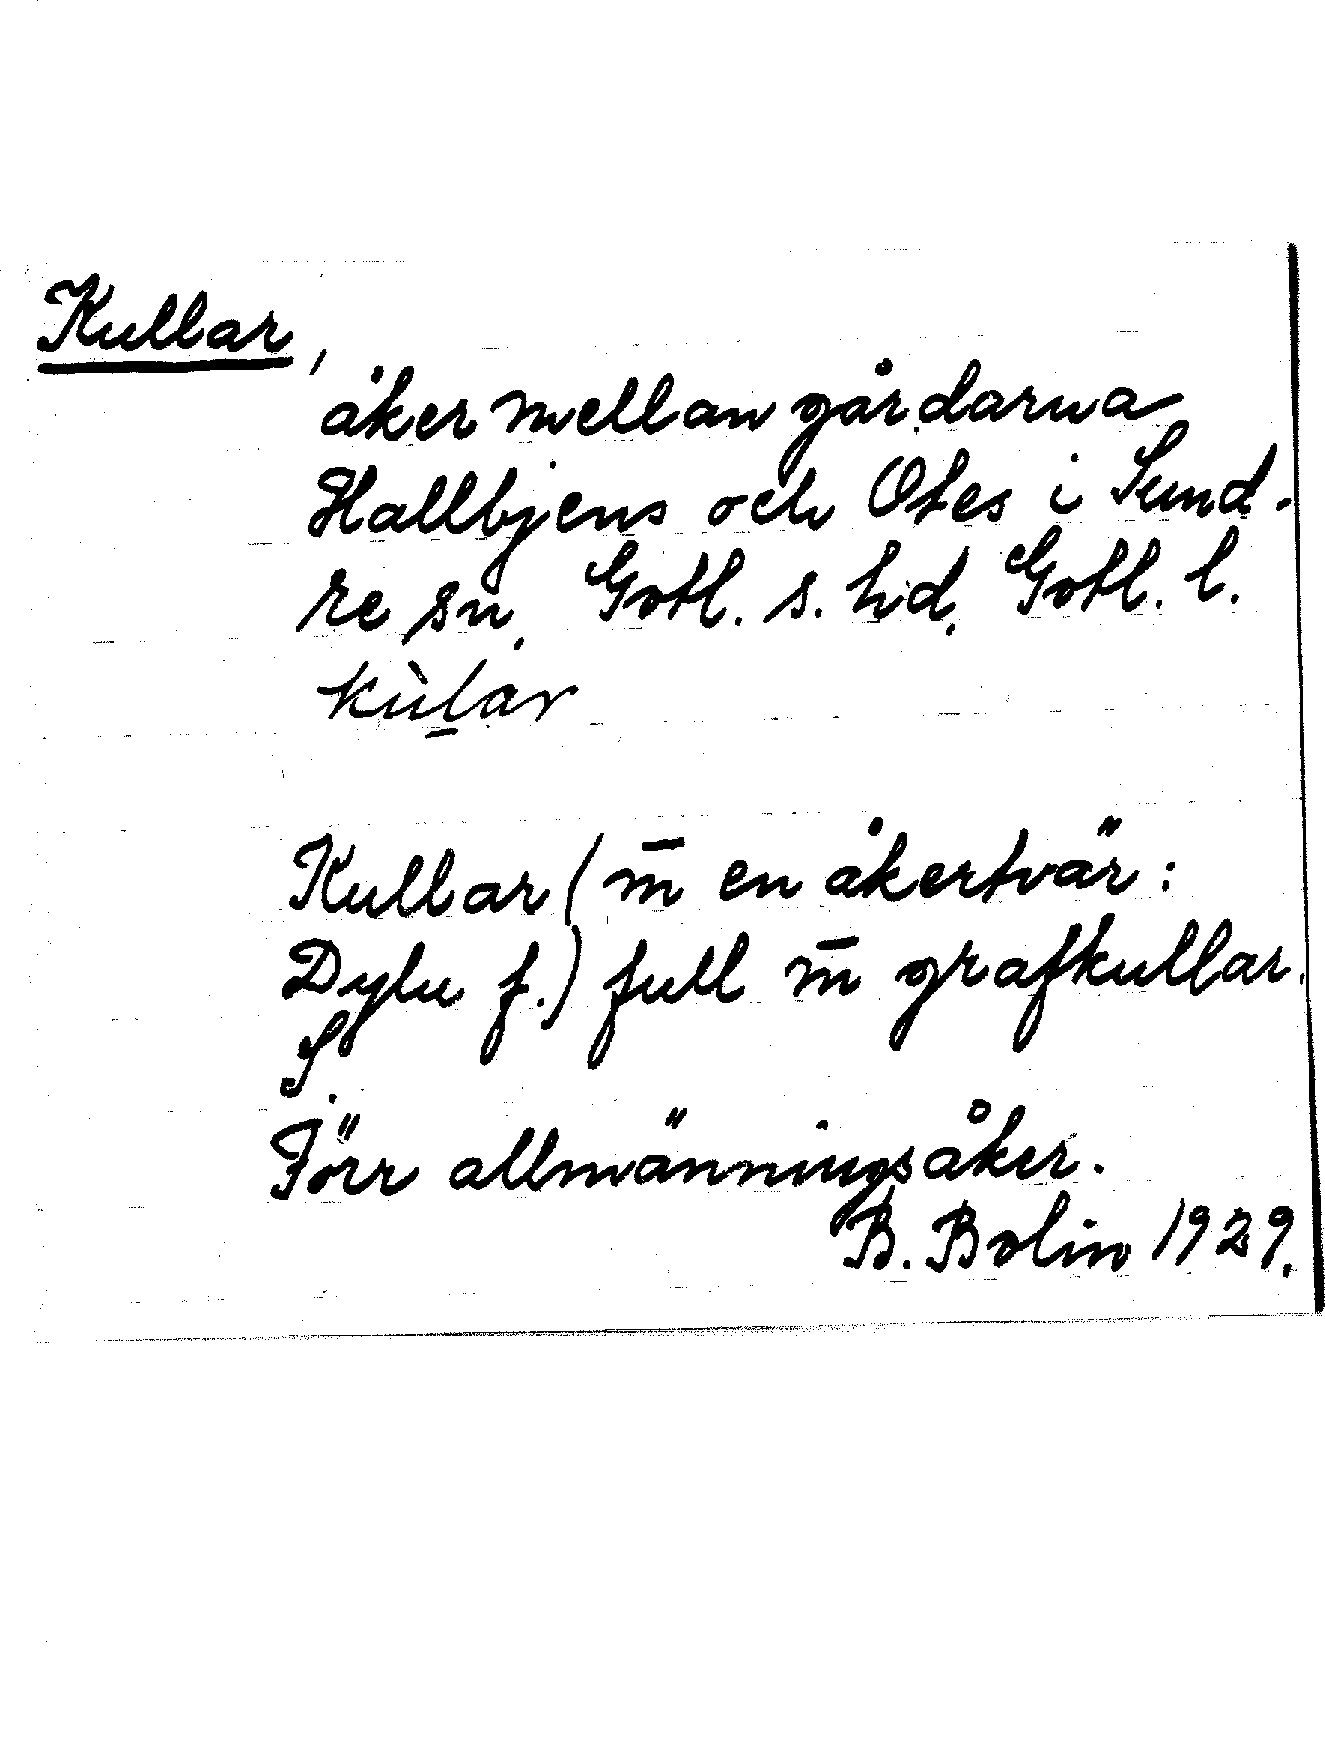 Kullar,
åker mellan gårdarna
Hallbjens och Otes i Sund-
re sn. Gotl. s. hd. Gotl. l.
kùlar
Kullar (m̄ en åkertvär:
Dylu f.) full m̄ grafkullar.
S.
Förr allmänningsåker.
B. Bolin 1929.